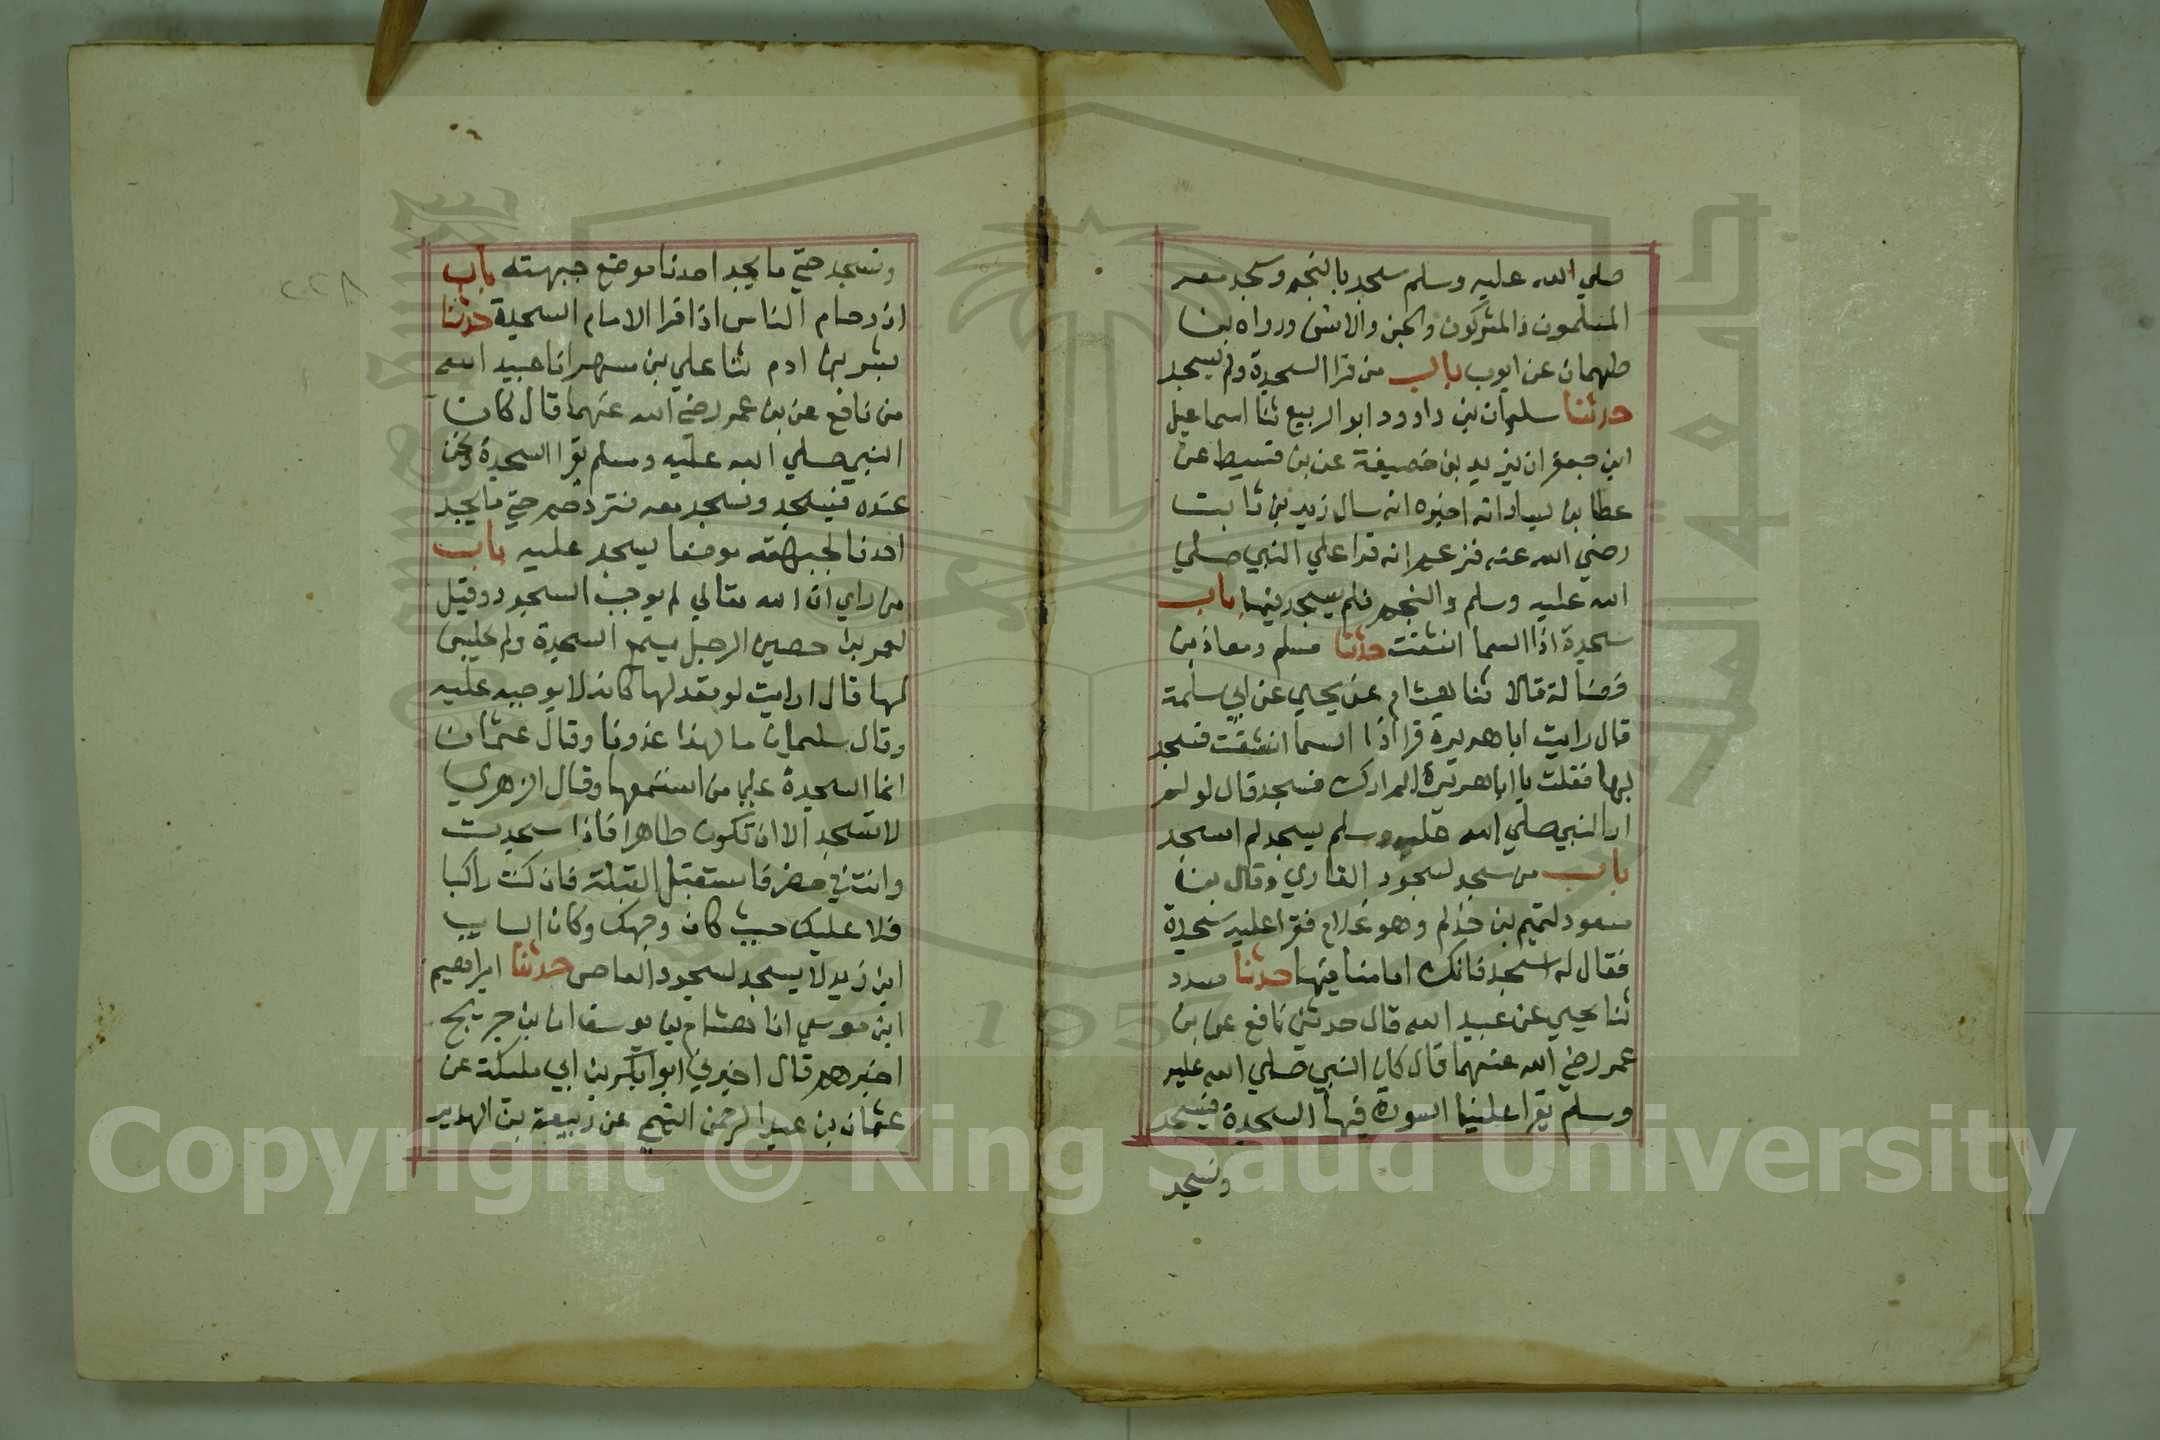 صلي الله عليه وسلم سجد بالنجم وسجد معه
المسلمون والمشركون والجن والانس ورواه بن
طهمان عن ايوب باب من قرا السجدة ولم يسجد
حدثنا سليمان بن داوود ابو الربيع ثنا اسماعيل
ابن جعفر ان يزيد بن خصيفة عن بن قسيط عن
عطا بن يسار انه اخبره انه سال زيد بن ثابت
رضي الله عنه فزعم انه قرا علي النبي صلي
الله عليه وسلم والنجم فلم يسجد فيها باب
سجدة اذا السما انشقت حدثنا مسلم ومعاذ بن
فضالة قالا ثنا هشام عن يحيي عن ابي سلمة
قال رايت ابا هريرة قرا اذا السما انشقت فسجد
بها فقلت يا ابا هريرة الم ارك فسجد قال لو لم
ار النبي صلي الله عليه وسلم يسجد لم اسجد
باب من سجد لسجود القاري وقال بن
مسعود لتميم بن حذلم وهو غلام فقرا عليه سجدة
فقال له اسجد فانك امامنا فيها حدثنا مسدد
ثنا يحيي عن عبيد الله قال حدثني نافع عن بن
عمر رضي الله عنهما قال كان النبي صلي الله عليه
وسلم يقرا علينا السورة فيها السجدة فيسجد
ونسجد
٢٢٨
ونسجد حتي ما يجد احدنا موضع جبهته باب
ازدحام الناس اذا قرا الامام السجدة حدثنا
بشر بن ادم ثنا علي بن مسهر انا عبيد الله
من نافع عن بن عمر رضي الله عنهما قال كان
النبي صلي الله عليه وسلم يقرا السجدة ونحن
عنده فيسجد ونسجد معه فنزدحم حتي ما يجد
احدنا لجبهته موضعا يسجد عليه باب
من راي ان الله تعالي لم يوجب السجود وقيل
لعمر بن حصين الرجل يسمع السجدة ولم يجلس
لها قال ارايت لو قعد لها كانه لا يوجبه عليه
وقال سليمان ما لهذا غدونا وقال عثمان
انما السجدة علي من استمعها وقال الزهري
لا تسجد الا ان تكون طاهرا فاذا سجدت
وانت في حضر فاستقبل القبلة فان كنت راكبا
فلا عليك حيث كان وجهك وكان السايب
ابن زيد لا يسجد لسجود القاص حدثنا ابراهيم
ابن موسي انا هشام بن يوسف ان بن جريج
اخبرهم قال اخبرني ابو بكر بن ابي مليكة عن
عثمان بن عبد الرحمن التيمي عن ربيعة بن الهدير
1957
Copyright © King Saud University